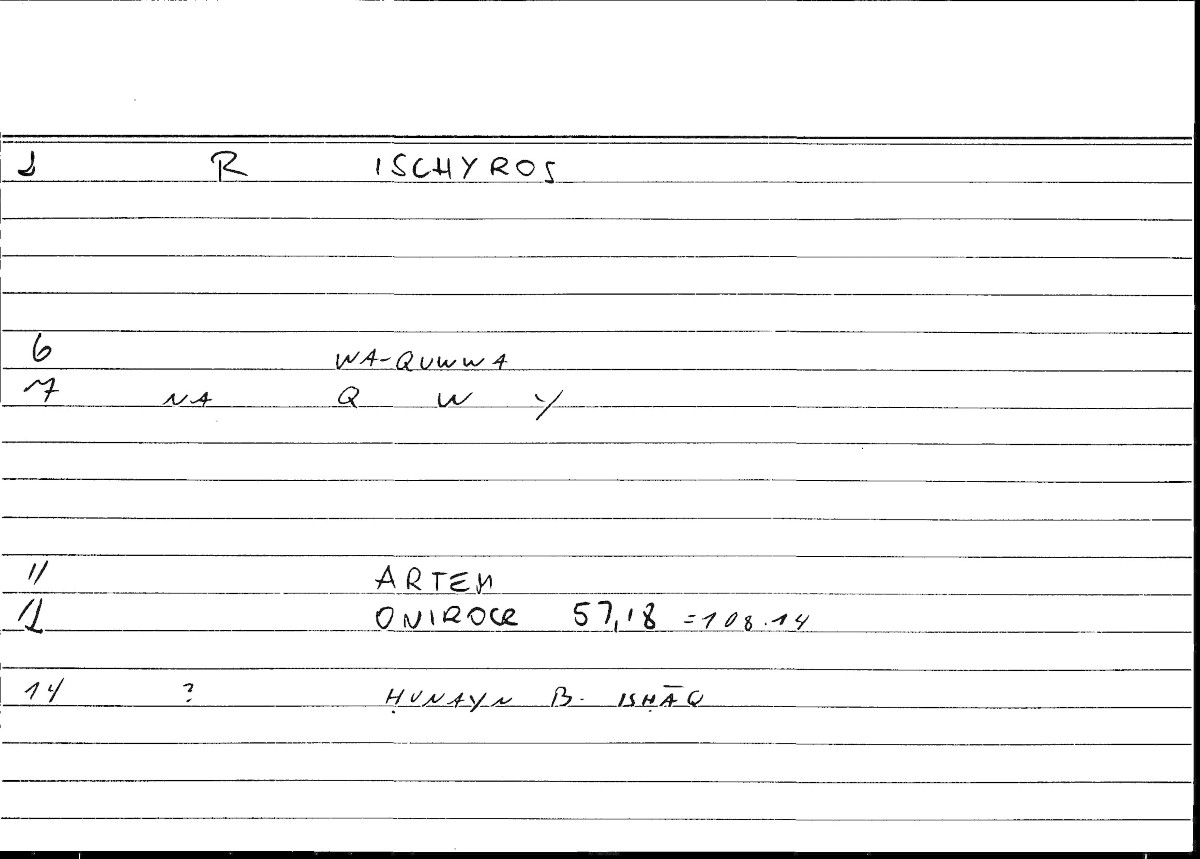 1 R ISCHYROS
6 WA-QUWWA
7 NA Q W Y
11 ARTEM
12 ONIROCR 57,18 =108.14
14 ? ḤUNAYN B. ISḤĀQ